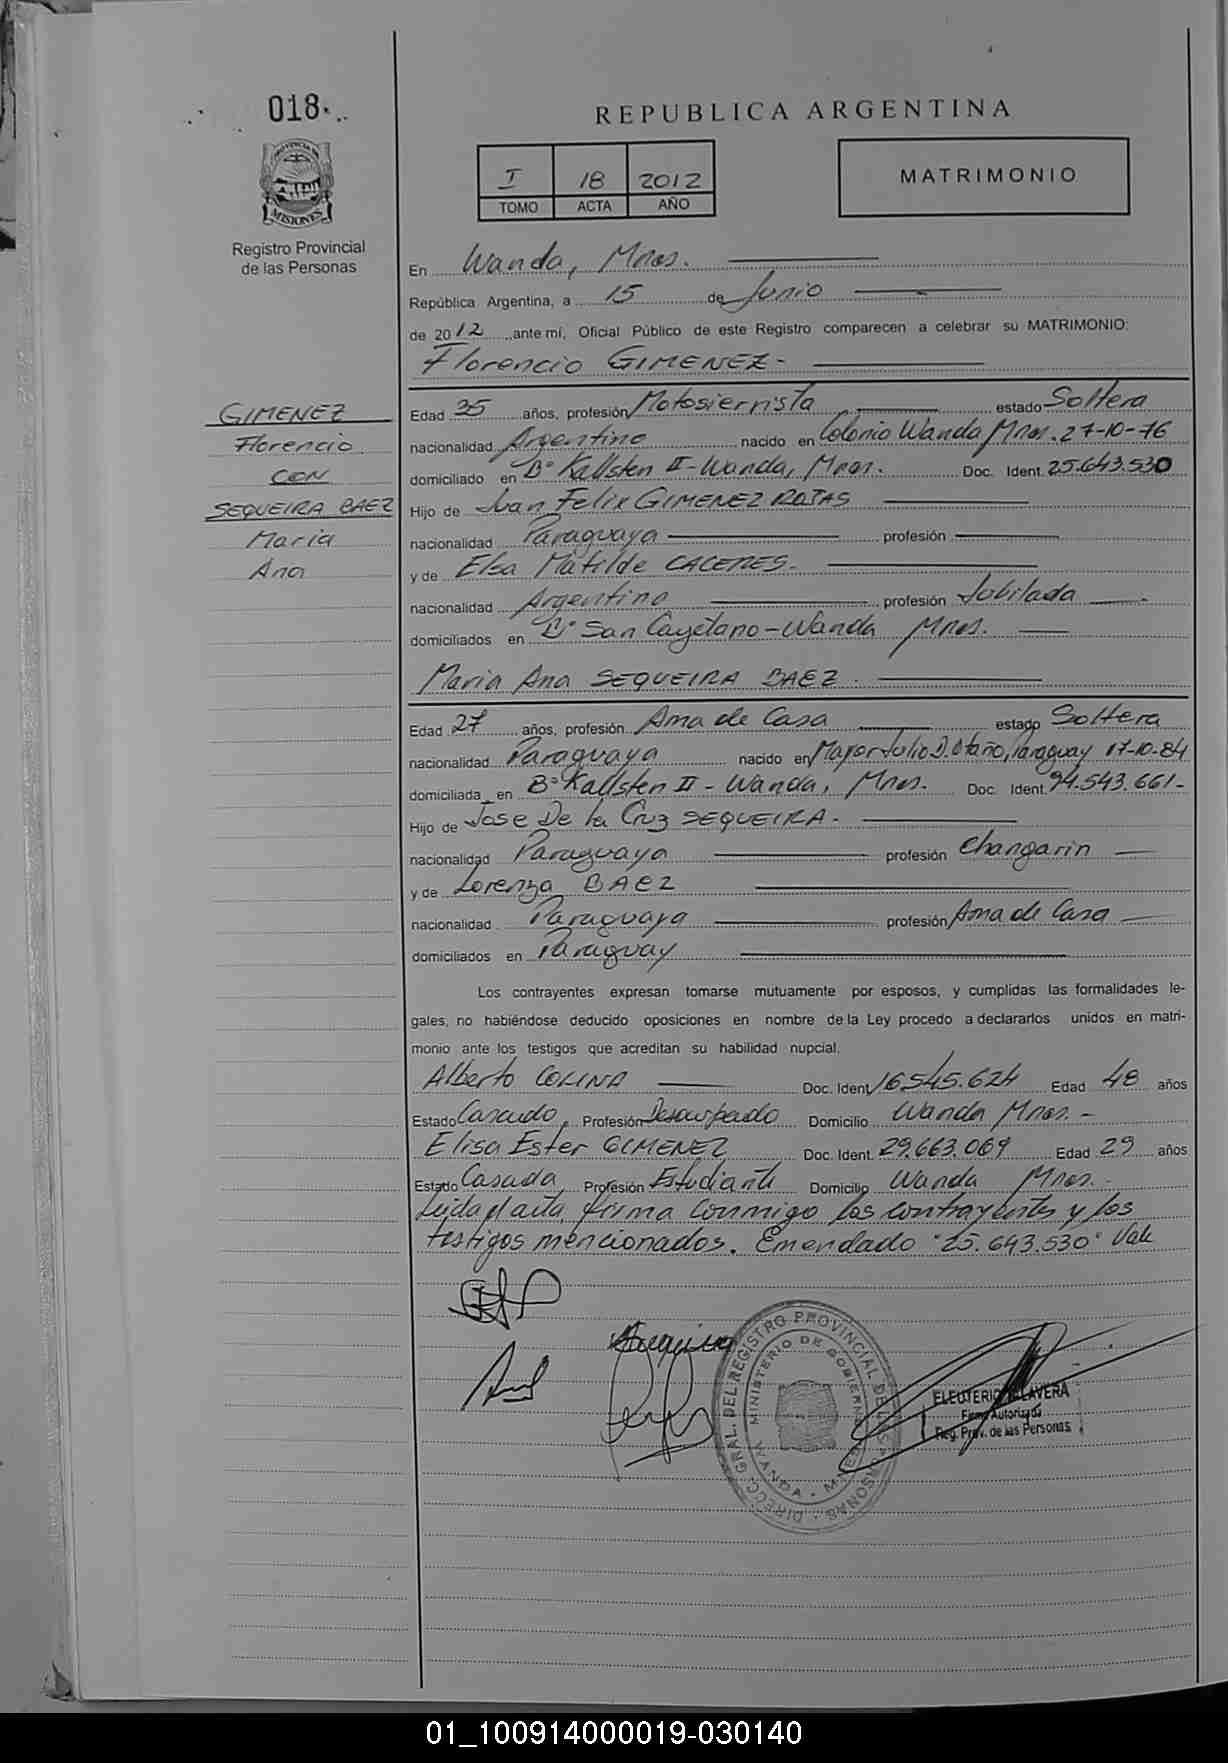 018
REPUBLICA ARGENTINA
I 18 2012
TOMO ACTA AÑO
MATRIMONIO
PROVINCIA DE
MISIONES
Registro Provincial
de las Personas
En Wanda, Mnes.
República Argentina, a 15 de Junio
de 2012 ante mí, Oficial Público de este Registro comparecen a celebrar su MATRIMONIO:
Florencio GIMENEZ-
GIMENEZ
Florencio
CON
SEQUEIRA BAEZ
Maria
Ana
Edad 35 años, profesión Motosierrista estado Soltera
nacionalidad Argentino nacido en Colonia Wanda Mnes. 27-10-76
domiciliado en B° Kallsten II-Wanda, Mnes. Doc. Ident. 25.643.530
Hijo de Juan Felix GIMENEZ ROJAS
nacionalidad Paraguaya profesión
y de Elsa Matilde CACERES-
nacionalidad Argentina profesión Jubilada
domiciliados en B° San Cayetano-Wanda Mnes.
Maria Ana SEQUEIRA BAEZ
Edad 27 años, profesión Ama de Casa estado Soltera
nacionalidad Paraguaya nacido en Mayor Julio D. Otaño, Paraguay 17-10-84
domiciliada en B° Kallsten II-Wanda, Mnes. Doc. Ident. 94.543.661-
Hijo de Jose De la Cruz SEQUEIRA-
nacionalidad Paraguaya profesión Changarin
y de Lorenza BAEZ
nacionalidad Paraguaya profesión Ama de Casa
domiciliados en Paraguay
Los contrayentes expresan tomarse mutuamente por esposos, y cumplidas las formalidades le-
gales, no habiéndose deducido oposiciones en nombre de la Ley procedo a declararlos unidos en matri-
monio ante los testigos que acreditan su habilidad nupcial.
Alberto COLINA Doc. Ident. 16.545.624 Edad 48 años
Estado Casado, Profesión Desocupado Domicilio Wanda Mnes.-
Elisa Ester GIMENEZ Doc. Ident. 29.663.069 Edad 29 años
Estado Casada, Profesión Estudiante Domicilio Wanda Mnes.-
Leida el acta, firma conmigo los contrayentes y los
testigos mencionados. Emendado "25.643.530" Vale
DIRECC. GRAL. DEL REGISTRO PROVINCIAL DE LAS PERSONAS
MINISTERIO DE GOBIERNO
WANDA - MNES
ELEUTERIO TALAVERA
Firma Autorizada
Reg. Prov. de las Personas
01_100914000019-030140